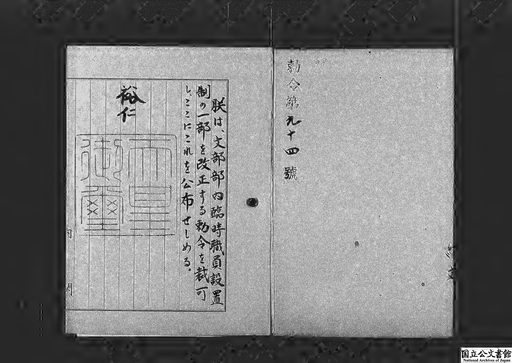 勅令第九十四號
朕は、文部部内臨時職員設置
制の一部を改正する勅令を裁可
し、ここにこれを公布せしめる。
裕仁
天皇
御璽
月
国立公文書館
National Archives of Japan